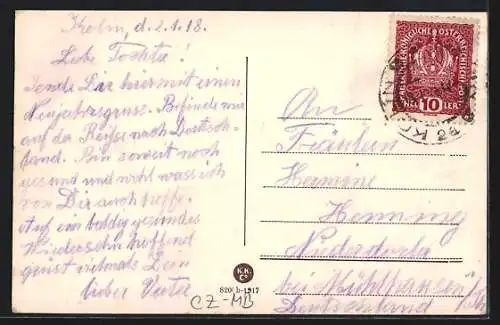 Kolin, d. 2.1.18.
Liebe Tochter!
Sende Dir hier mit einen
Neujahrsgruss. Befinde mich
auf der Reise nach Deutsch-
land. Bin soweit noch
gesund und wohl was ich
von Dir auch hoffe.
Auf ein baldig gesundes
Wiedersehn hoffend
grüsst vielmals Dein
lieber Vater
An
Fräulein
Hermine
Henning
Niederdorla
bei Mühlhausen
Deutschland
10
HELLER
K.K.
Co
820 b-1917
CZ-MB